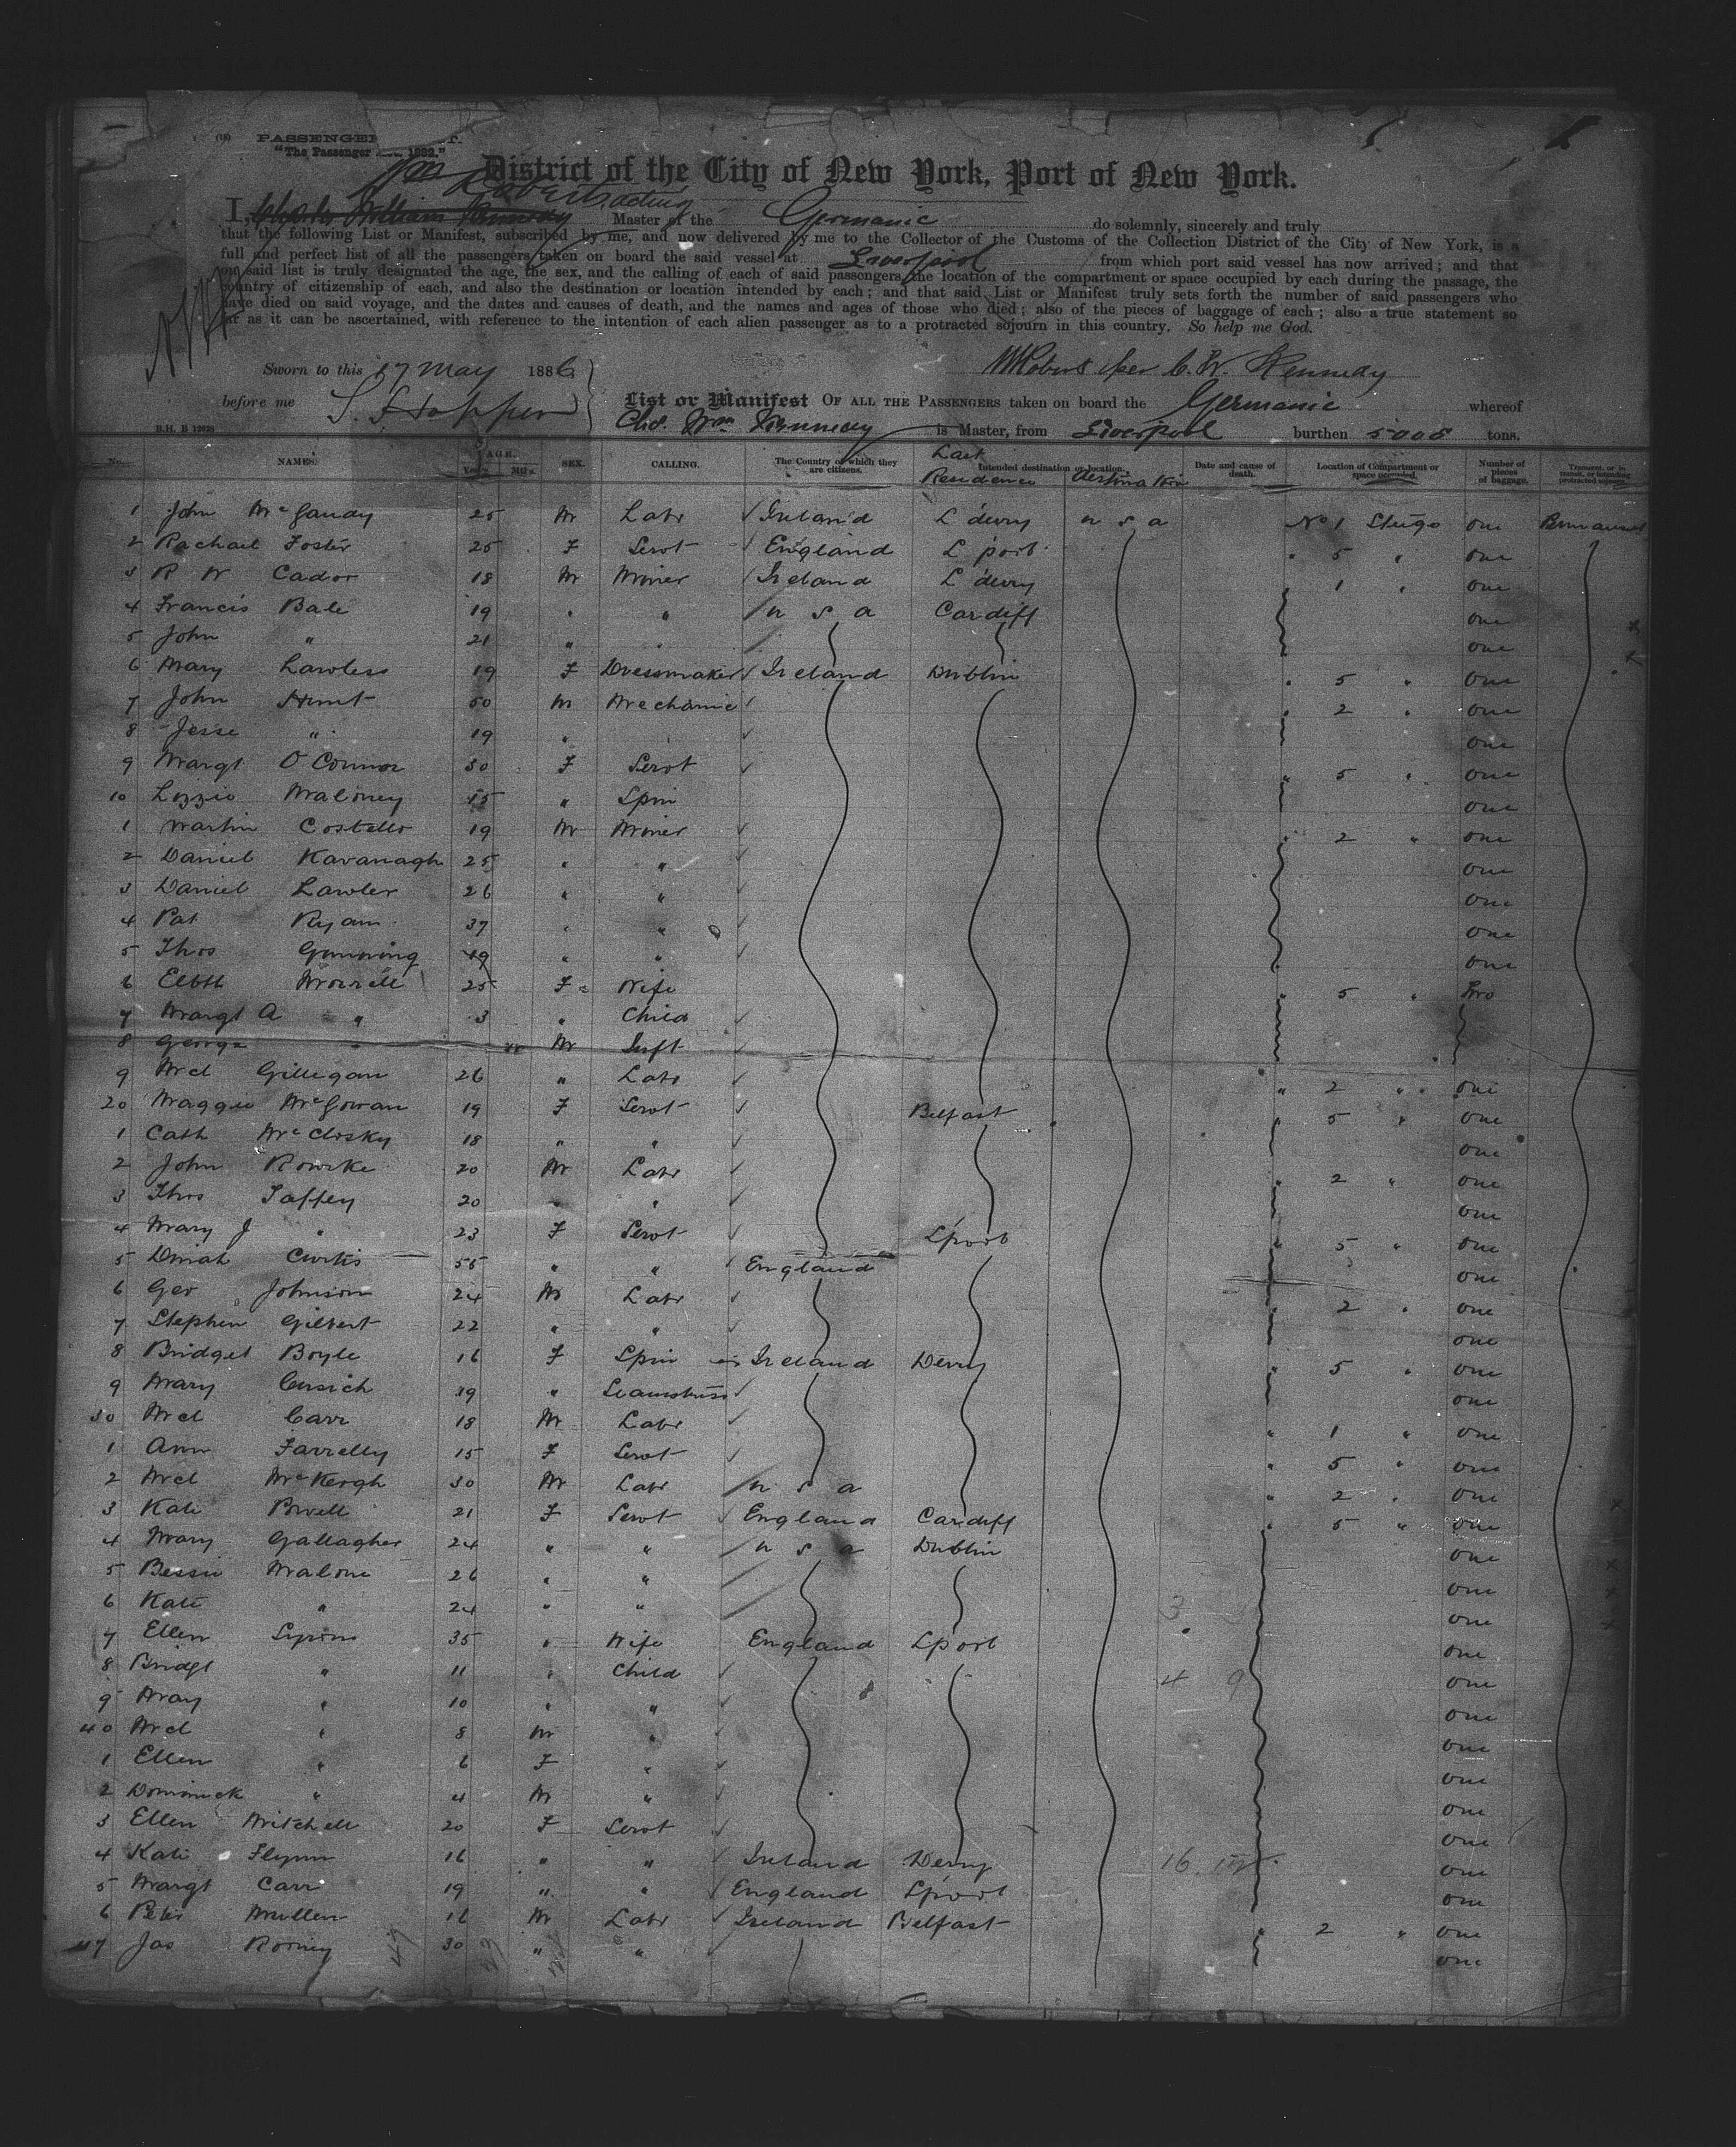 (18) PASSENGER
"The Passenger Act, 1882."
District of the City of New York, Port of New York.
Wm Roberts acting
I, Charles William Kennedy Master of the Germanic do solemnly, sincerely and truly
that the following List or Manifest, subscribed by me, and now delivered by me to the Collector of the Customs of the Collection District of the City of New York, is a
full and perfect list of all the passengers taken on board the said vessel at Liverpool from which port said vessel has now arrived; and that
on said list is truly designated the age, the sex, and the calling of each of said passengers, the location of the compartment or space occupied by each during the passage, the
country of citizenship of each, and also the destination or location intended by each; and that said List or Manifest truly sets forth the number of said passengers who
have died on said voyage, and the dates and causes of death, and the names and ages of those who died; also of the pieces of baggage of each; also a true statement so
far as it can be ascertained, with reference to the intention of each alien passenger as to a protracted sojourn in this country. So help me God.
Sworn to this 17 May 1886
WRoberts per C. W. Kennedy
before me S. J. Hopper
List or Manifest OF ALL THE PASSENGERS taken on board the Germanic whereof
Chs. Wm Kennedy is Master, from Liverpool burthen 5008 tons.
No. NAMES. AGE. Years Mths. SEX. CALLING. The Country of which they are citizens. Last Residence Intended destination or location. destination Date and cause of death. Location of Compartment or space occupied. Number of pieces of baggage. Transient, or in transit, or intending protracted sojourn.
1 John McGandy 25 M Labr Ireland L'derry U S A No 1 Stge one Permanent
2 Rachael Foster 25 F Servt England L'pool 5 " one
3 R W Cador 18 M Miner Ireland L'derry 1 " one
4 Francis Bale 19 " " U S A Cardiff one
5 John " 21 " " one
6 Mary Lawless 19 F Dressmaker Ireland Dublin " 5 " one
7 John Hunt 50 M Mechanic " 2 " one
8 Jesse " 19 " one
9 Margt O'Connor 30 F Servt " 5 " one
10 Lizzie Maloney 55 " Spin one
1 Martin Costello 19 M Miner " 2 " one
2 Daniel Kavanagh 25 " " one
3 Daniel Lawler 26 " " one
4 Pat Ryan 37 " " one
5 Thos Gunning 19 " " one
6 Elbth Morrell 25 F Wife " 5 " Two
7 Margt A " 3 " Child
8 George " M Inft
9 Mcl Gilligan 26 " Labr " 2 " one
20 Maggie McGowan 19 F Servt Belfast 5 " one
1 Cath McClosky 18 " " one
2 John Rourke 20 M Labr " 2 " one
3 Thos Taffey 20 " " one
4 Mary J " 23 F Servt L'pool " 5 " one
5 Dinah Curtis 55 " " England one
6 Geo Johnson 24 M Labr 2 " one
7 Stephen Gilbert 22 " " one
8 Bridget Boyle 16 F Spin Ireland Derry " 5 " one
9 Mary Cusich 19 " Seamstress one
30 Mcl Carr 18 M Labr " 1 " one
1 Ann Farrelly 15 F Servt " 5 " one
2 Mcl McKeogh 30 M Labr U S A " 2 " one
3 Kate Powell 21 F Servt England Cardiff " 5 " one
4 Mary Gallagher 24 " " U S A Dublin one
5 Bessie Malone 26 " " one
6 Kate " 24 " " one
7 Ellen Lyons 35 " Wife England L'pool one
8 Bridgt " 11 " Child one
9 Mary " 10 " " one
40 Mcl " 8 M " one
1 Ellen " 6 F " one
2 Dominick " 4 M " one
3 Ellen Mitchell 20 F Servt one
4 Kate Flynn 16 " " Ireland Derry one
5 Margt Carr 19 " " England L'pool one
6 Peter Mullen 16 M Labr Ireland Belfast " 2 " one
47 Jas Rooney 30 " " one